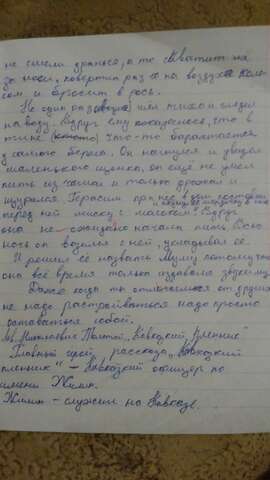 не смели драться, а то схватит их
за
раз в на воздухе коле-
сом и бросит в
Не один раз он тихо и глядел
на воду. Вдруг ему показалось, что в
тине что-то барахтается
у самого берега. Он нагнулся и увидел
маленького щенка, он ещё не умел
пить из чашки и только дрожал и
щурился. Герасим
перед ней миску с молоком. Вдруг
она не ожиданно начала пить. Всю
ночь он возился с ней, укладывал её.
И решил её назвать Муму потому что
она всё время только издавала звук му.
Даже когда ты отличаешся от других
не надо растраиваться надо просто
оставаться собой.
Николаевич Толстой „Кавказкий пленник"
Главный герой рассказа „Кавказкий
пленник" – Кавказкий офицер по
имени Жилин.
Жилин – служил на Кавказе.